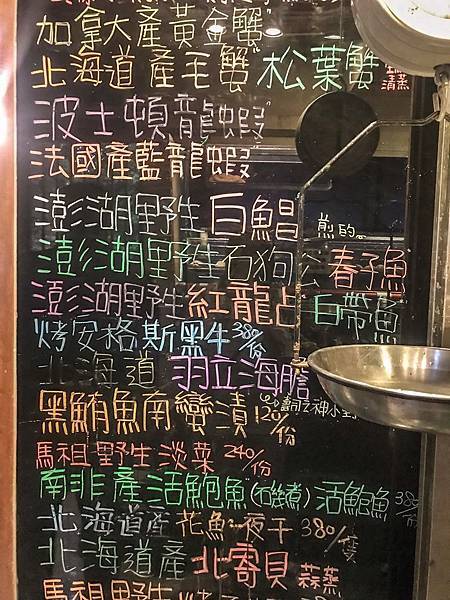 加拿大產黃金蟹
北海道產毛蟹 松葉蟹 清蒸
波士頓龍蝦
法國產藍龍蝦
澎湖野生白鯧 煎的
澎湖野生石狗公 春子魚
澎湖野生紅龍占 白帶魚
烤安格斯黑牛 380/份
北海道 羽立海膽
黑鮪魚南蠻漬 120/份
馬祖野生淡菜 240/份
南非產活鮑魚(不幾煮)活鮑魚
北海道產花魚一夜干 380/隻
北海道產 北寄貝 蒜蒸
馬祖野生